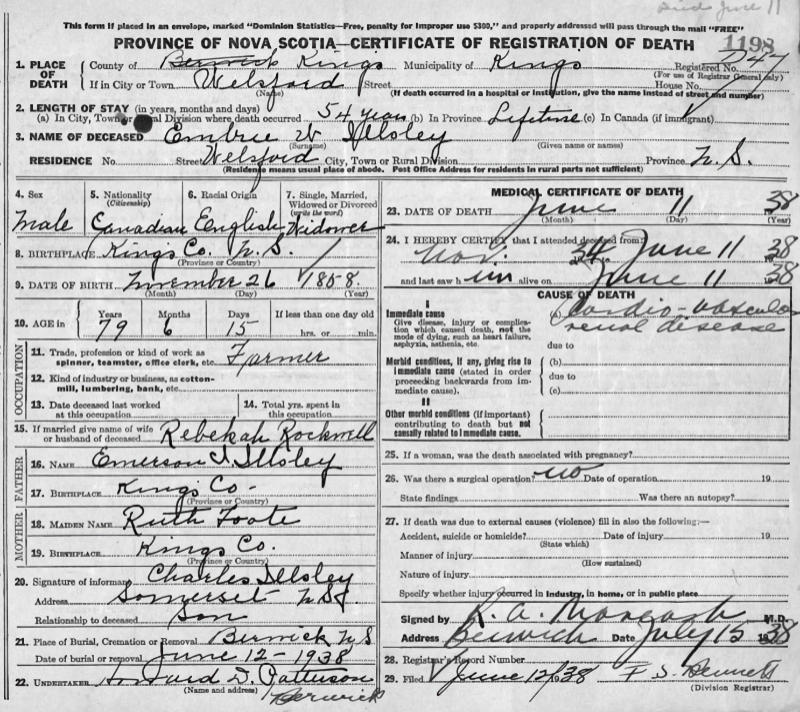 Died June 11
This form if placed in an envelope, marked "Dominion Statistics—Free, penalty for improper use $300," and properly addressed will pass through the mail "FREE"
PROVINCE OF NOVA SCOTIA—CERTIFICATE OF REGISTRATION OF DEATH
1198
1. PLACE OF DEATH County of Berwick Kings Municipality of Kings Registered No. 247
(For use of Registrar General only)
If in City or Town Welsford Street House No.
(Name) (If death occurred in a hospital or institution, give the name instead of street and number)
2. LENGTH OF STAY (in years, months and days)
(a) In City, Town or Rural Division where death occurred 54 years (b) In Province Lifetime (c) In Canada (if immigrant)
3. NAME OF DECEASED Embree W Illsley
(Surname) (Given name or names)
RESIDENCE No. Street Welsford City, Town or Rural Division Province N. S.
(Residence means usual place of abode. Post Office Address for residents in rural parts not sufficient)
4. Sex Male
5. Nationality (Citizenship) Canadian
6. Racial Origin English
7. Single, Married, Widowed or Divorced (write the word) Widower
8. BIRTHPLACE Kings Co. N. S.
(Province or Country)
9. DATE OF BIRTH November 26 1858
(Month) (Day) (Year)
10. AGE in Years 79 Months 6 Days 15 If less than one day old hrs. or min.
OCCUPATION
11. Trade, profession or kind of work as spinner, teamster, office clerk, etc. Farmer
12. Kind of industry or business, as cotton-mill, lumbering, bank, etc.
13. Date deceased last worked at this occupation
14. Total yrs. spent in this occupation
15. If married give name of wife or husband of deceased Rebekah Rockwell
FATHER
16. NAME Emerson I. Illsley
17. BIRTHPLACE Kings Co.
(Province or Country)
MOTHER
18. MAIDEN NAME Ruth Foote
19. BIRTHPLACE Kings Co.
(Province or Country)
20. Signature of informant Charles Illsley
Address Somerset N.S.
Relationship to deceased Son
21. Place of Burial, Cremation or Removal Berwick N S
Date of burial or removal June 12 - 1938
22. UNDERTAKER Howard D. Patterson
(Name and address) Berwick
MEDICAL CERTIFICATE OF DEATH
23. DATE OF DEATH June 11 1938
(Month) (Day) (Year)
24. I HEREBY CERTIFY that I attended deceased from:
Nov. 34 to June 11 1938
and last saw h im alive on June 11 1938
CAUSE OF DEATH
I
Immediate cause
Give disease, injury or complication which caused death, not the mode of dying, such as heart failure, asphyxia, asthenia, etc.
(a) Cardio-vascular renal disease
due to
Morbid conditions, if any, giving rise to immediate cause (stated in order proceeding backwards from immediate cause).
(b)
due to
(c)
II
Other morbid conditions (if important) contributing to death but not causally related to immediate cause.
25. If a woman, was the death associated with pregnancy?
26. Was there a surgical operation? no Date of operation 19
State findings Was there an autopsy?
27. If death was due to external causes (violence) fill in also the following:—
Accident, suicide or homicide? Date of injury 19
(State which)
Manner of injury
(How sustained)
Nature of injury
Specify whether injury occurred in industry, in home, or in public place
Signed by M.D.
Address Berwick Date July 15 1938
28. Registrar's Record Number
29. Filed June 12/ 1938 F S. Bennett
(Division Registrar)